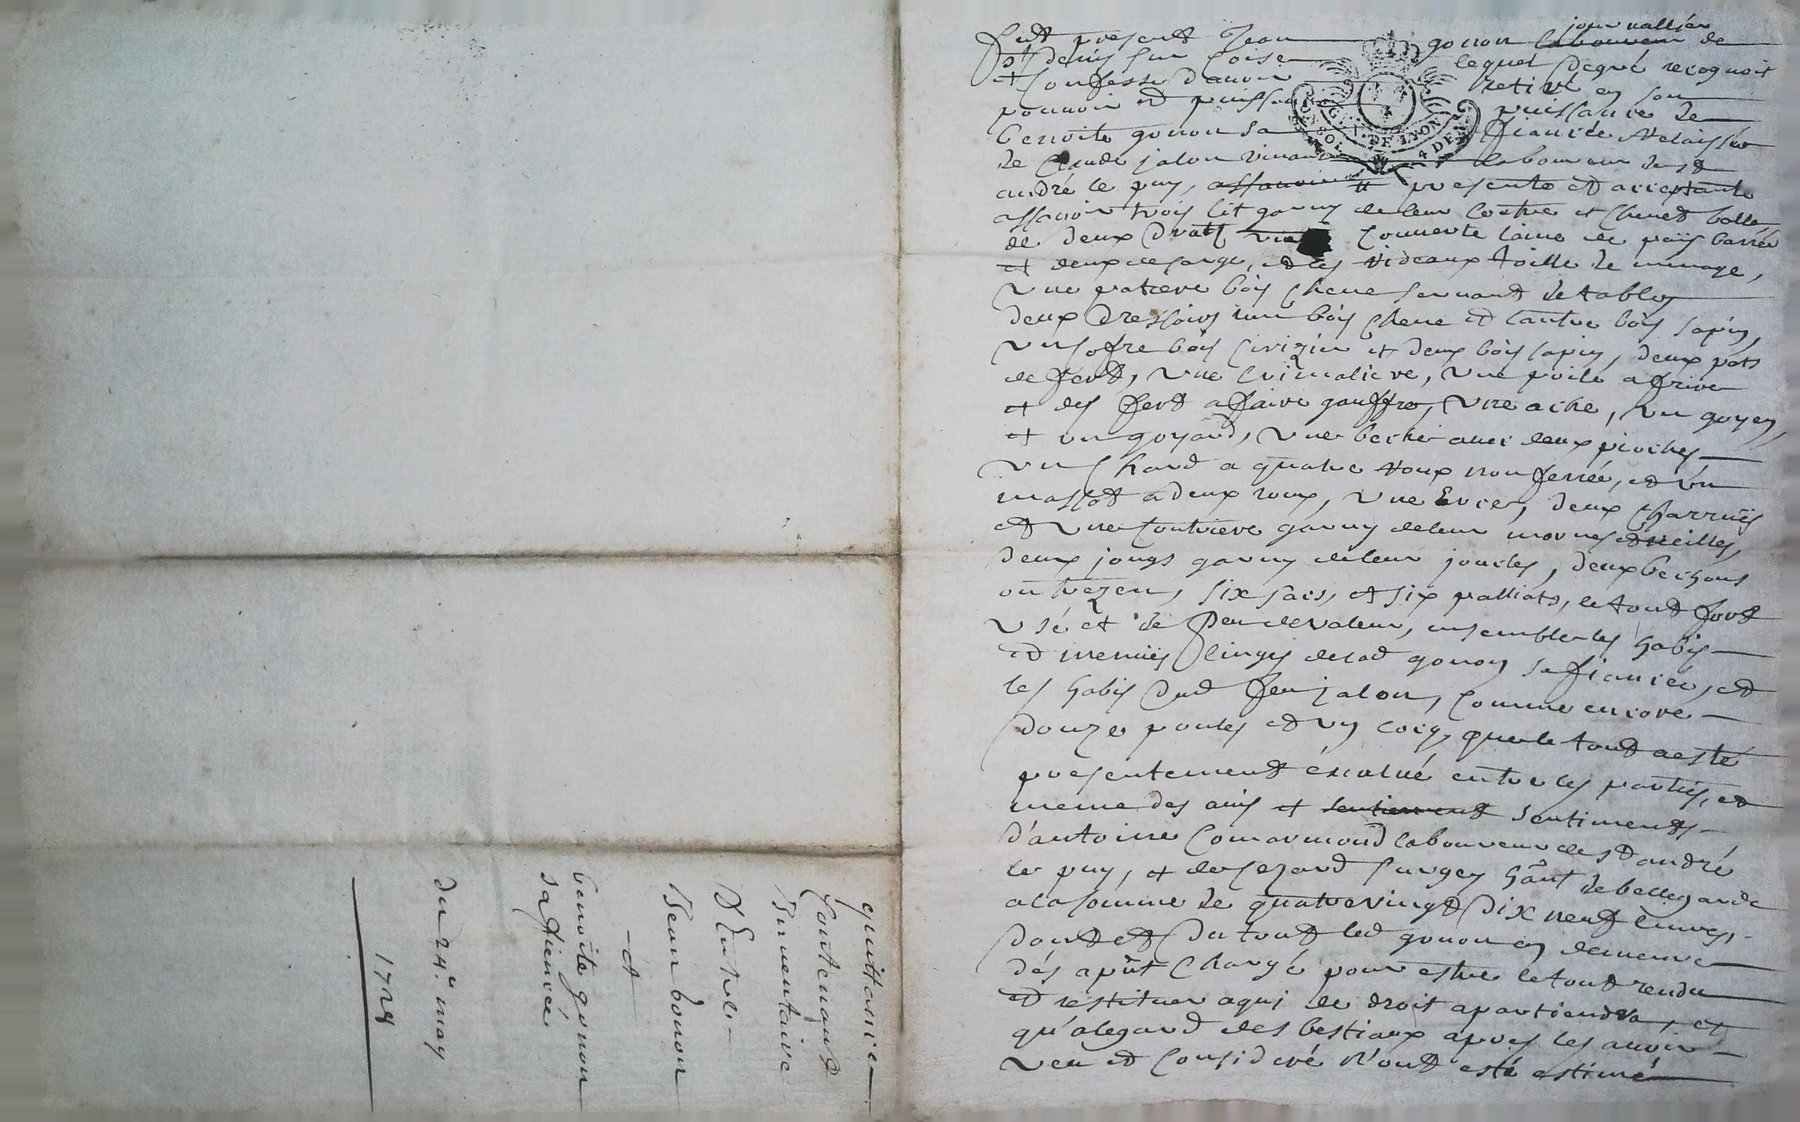 quittance
contenant
Inventaire
D'Entre
Jean Gonon
et
benoite gonon
sa fiencée
du 24e may
1728
journallier
Fut present Jean gonon laboureur de
st denis sur Coise lequel de gré recognoit
et confesse d'avoir retiré en son
pouvoir et puissance puissance de
benoite gonon sa fiancée relaissée
de Claude jalon vivant laboureur de st
andré le puy, assavoir presente et acceptante
assavoir trois lit garny de leur coutre et chevet balle
de deux drapt couverte laine de païs barrée
et deux de sarge, et les rideaux toille de menage,
une patiere bois chene servant de table
deux dressoirs un bois chene et l'autre bois sapin,
un cofre bois cirizier et deux bois sapin, deux pots
de fert, une crimaliere, une poile a frire
et des fert a faire gauffre, une ache, un goyen,
et un goyard, une beche avec deux pioches
un chard a quatre roux non ferrée, et un
massot a deux roux, une erce, deux charruës
et une coutriere garny de leur mornes et reilles,
deux jougs garny de leur joucles, deux bechons
ou trezen, six sacs, et six palliats, le tout fort
usé et de peu de valeur, ensemble les habis
et menuës linges de lad gonon sa fiancée, et
les habis dud feu jalon, comme encore
douze poules et un coiq, que le tout a esté
presentement évalué entre les parties, et
meme des avis et sentiement sentiments
d'antoine Comarmond laboureur de st andré
le puy, et de gerard hant de bellegarde
a la somme de quatre vingt dix neuf livres,
dont et du tout led gonon en demeure
dés aput chargé pour estre le tout rendu
et restituer a qui de droit apartiendra, et
qu'a legard des bestiaux apres les avoir
veu et consideré n'ont esté estimé
G. N. DE LYON
4 DEN.